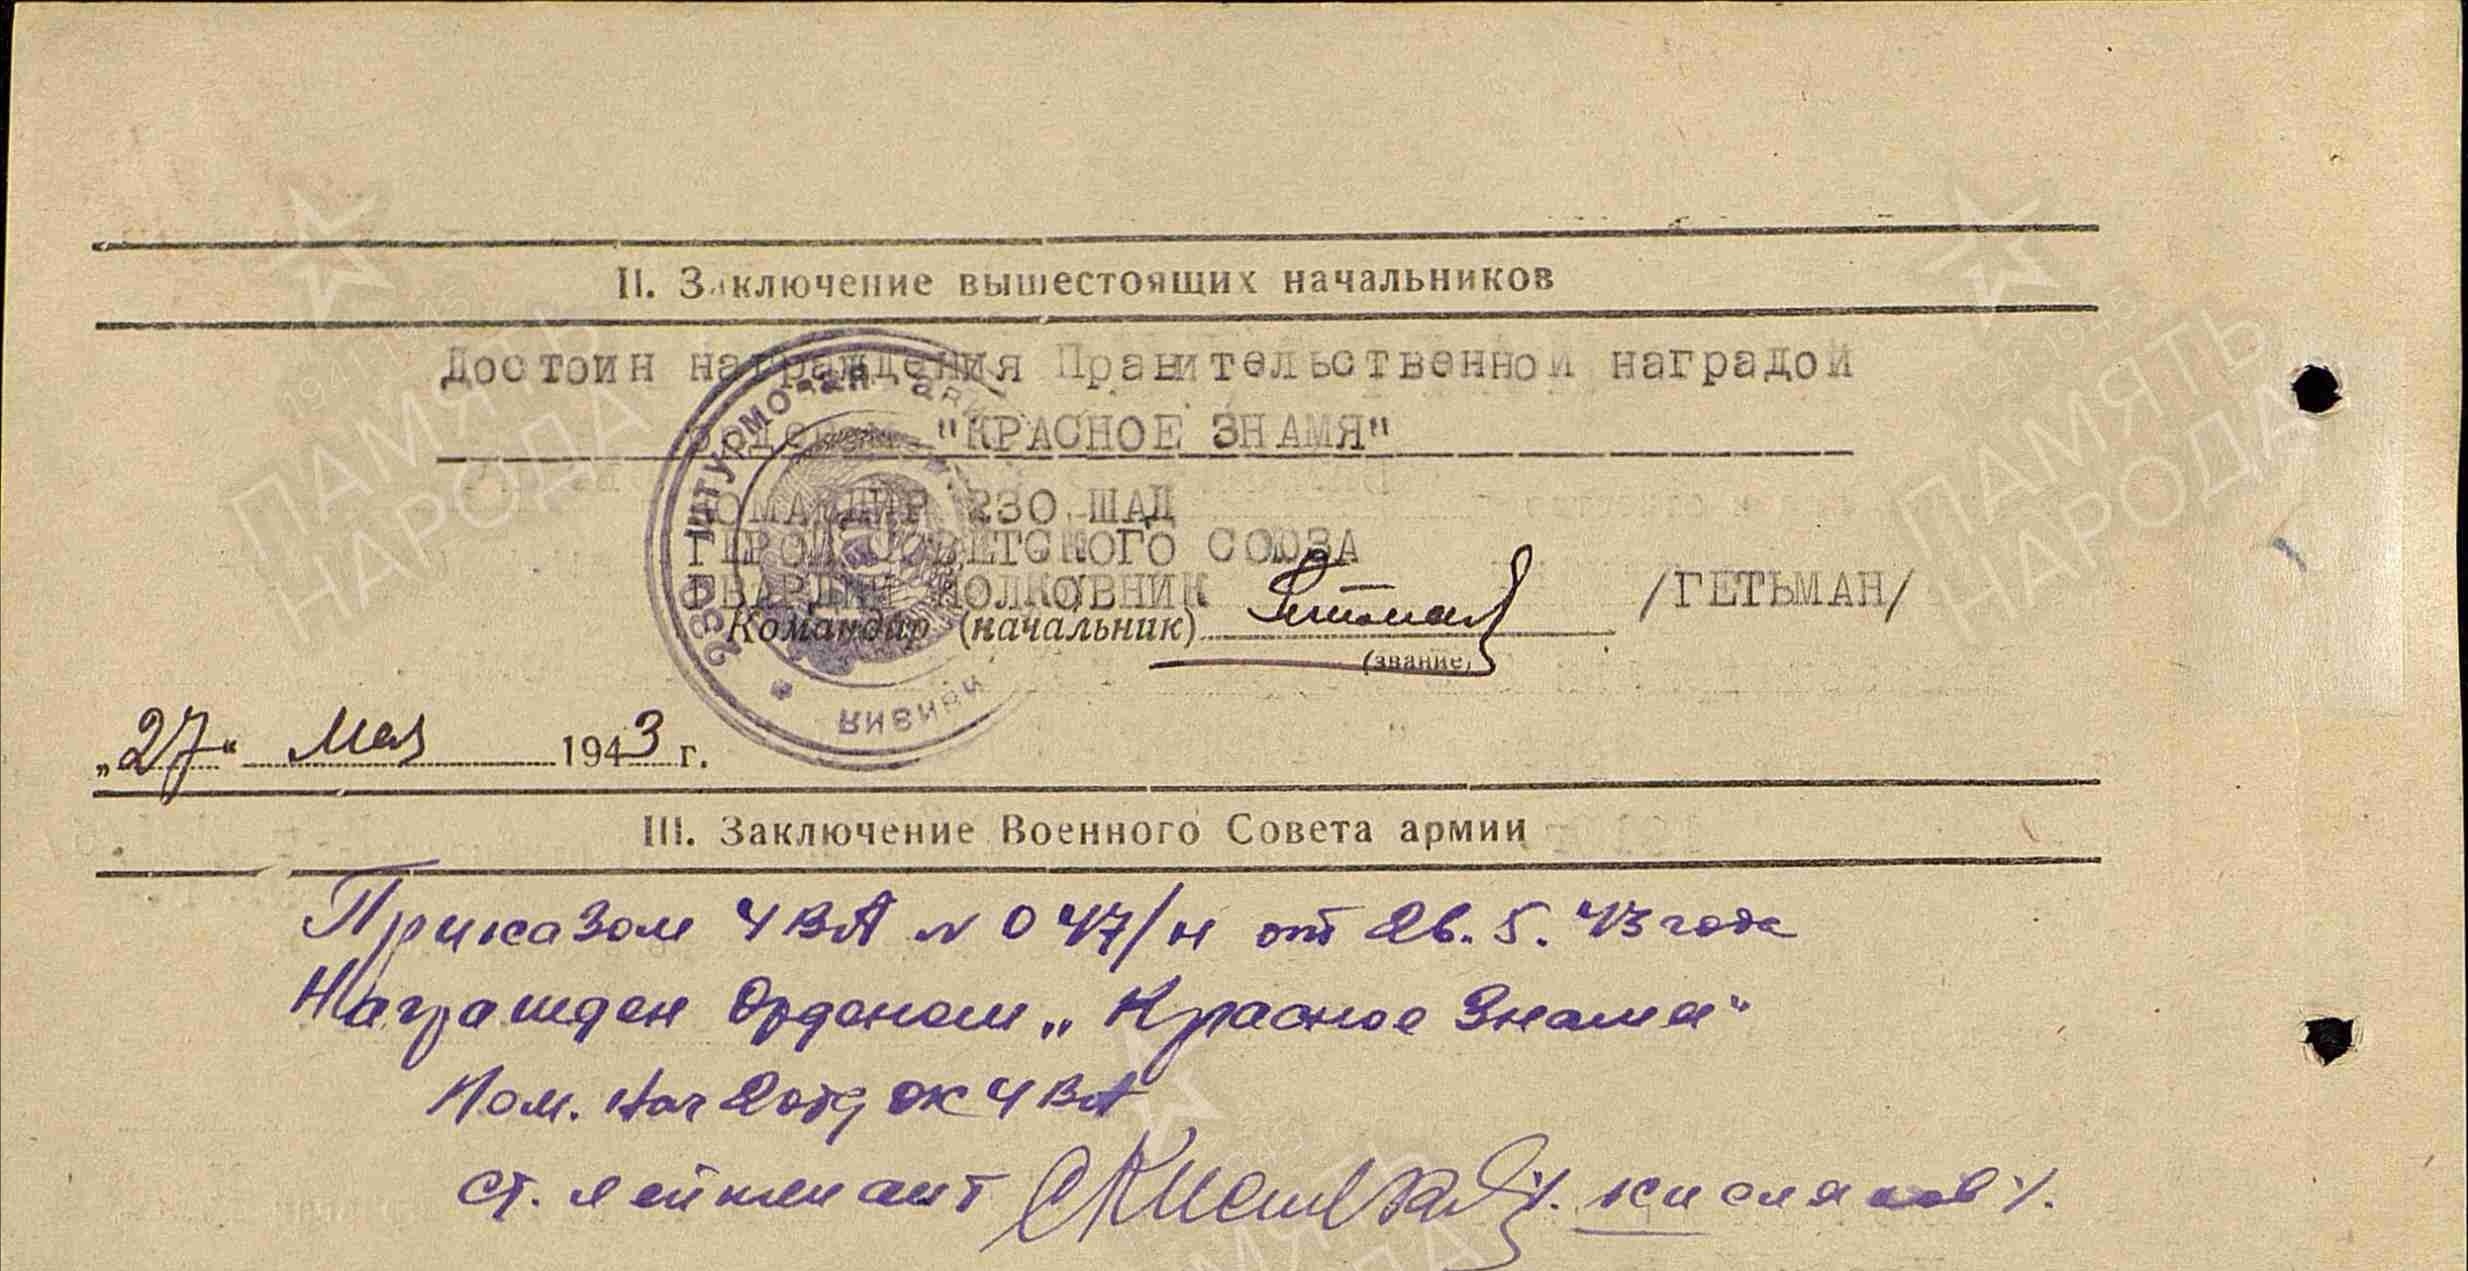 II. Заключение вышестоящих начальников
Достоин награждения Правительственной наградой
орденом "КРАСНОЕ ЗНАМЯ"
КОМАНДИР 230 ШАД
ГЕРОЙ СОВЕТСКОГО СОЮЗА
ГВАРДИИ ПОЛКОВНИК
/ГЕТЬМАН/
Командир (начальник)
(звание)
230 Штурмовая
дивизия
„27“ Мая 1943 г.
III. Заключение Военного Совета армии
Приказом 4 ВА N 047/н от 26.5.43 года
Награжден Орденом „Красное Знамя"
Пом. Нач 2 отд ОК 4 ВА
ст. лейтенант /. Кисляков /.
1941 1945
ПАМЯТЬ
НАРОДА
1941 1945
ПАМЯТЬ
НАРОДА